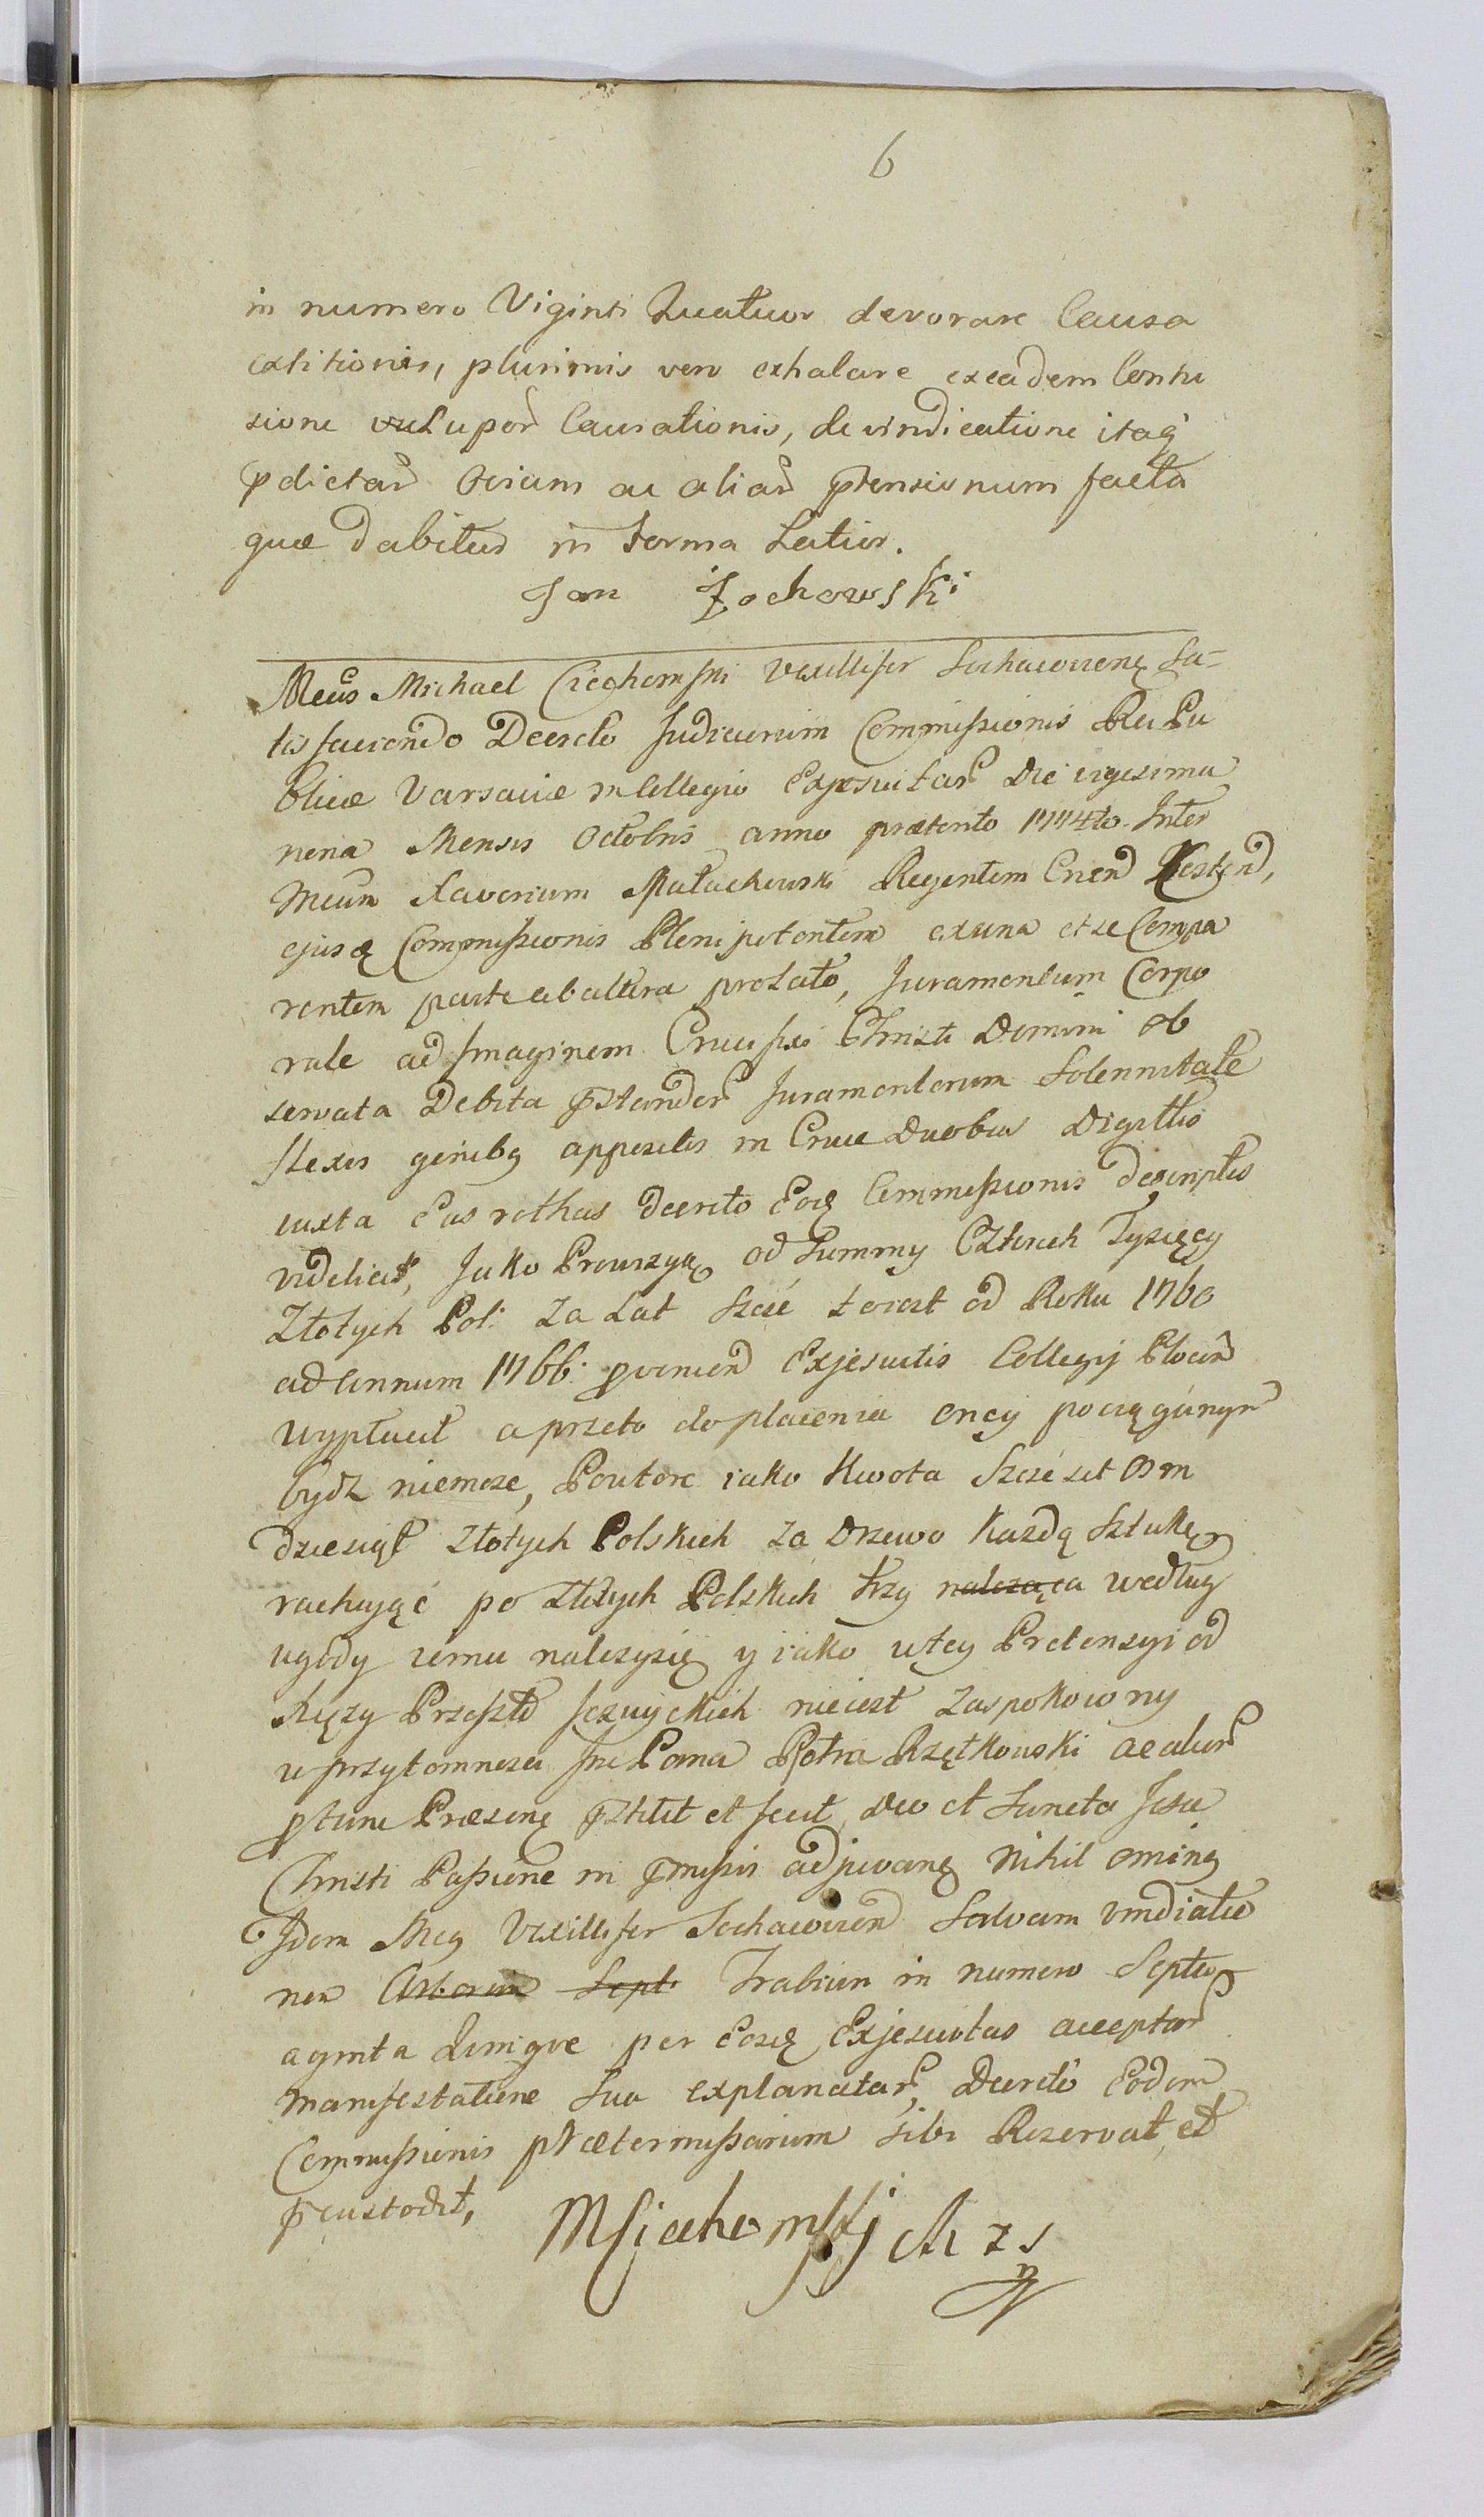 6
in numero Viginti Quatuor devorare Causa
extitionis, plurimis vero exhalare exeadem Contu
sione Lupor Causationis, de vindicatione itaq
pdictar Ovium ac aliar ptensionum facta
quæ Dabitur in Forma Latior.
Jan Żochowski
Meus Michael Ciechomski Vexillifer Sochaovien Sa-
tisfaciendo Decreto Judiciorum Commissionis Rei Pu
blicæ Varsaviæ in Collegio Exjesuitar Die vigesima
nona Mensis Octobris anno præterito 1774to. Inter
Meum Xaverium Małachowski Regentem
ejusq Commissionis Plenipotentem ex una et se Compa
rentem parte ab altera prolato, Juramentum Corpo
rale ad Imaginem Crucifixi Christi Domini ob
servata Debita pstandor Juramentorum Solennitate
flexis genibq appositis in Cruce Duobus Digittis
iuxta Eas rothas Decreto Eoq Commissionis descriptas
videlicet, Jako Prowizyę od Summy Czterech Tysięcy
Złotych Pol: za Lat Sześć to iest od Roku 1760
ad Annum 1766. pvenien Exjesuitis Collegij Plocen
wypłacił a przeto do płacenia oney pociągúnym
bydz niemoze, Powtore iako Kwota Sześćset Osm
dziesiąt Złotych Polskich za Drzewo Każdą Sztukę
rachując po Złotych Polskich trzy należąca według
ugody iemu nalezysię y iako w tey Pretensyi od
Xięzy Przeszłd Jezuyckich nieiest zaspokoiony
w przytomnosci Jmc Pana Piotra Rzętkowski ac alior
ptunc Præsenq pstitit et fecit, Deo et Sancta Jesu
Christi Passione in pmissis adjuvanq Nihil ominq
Idem Meq Vexillifer Sochaovien Salvam vindicatio
nem Arborum Sept. Trabium in numero Septu
aginta Quinque per Eosq Exjesuitas acceptar
manifestatione Sua explanatar, Decreto Eodem
Commissionis prætermissarum Sibi Reservat et
pcustodit,
MCiechomskj Ch z s